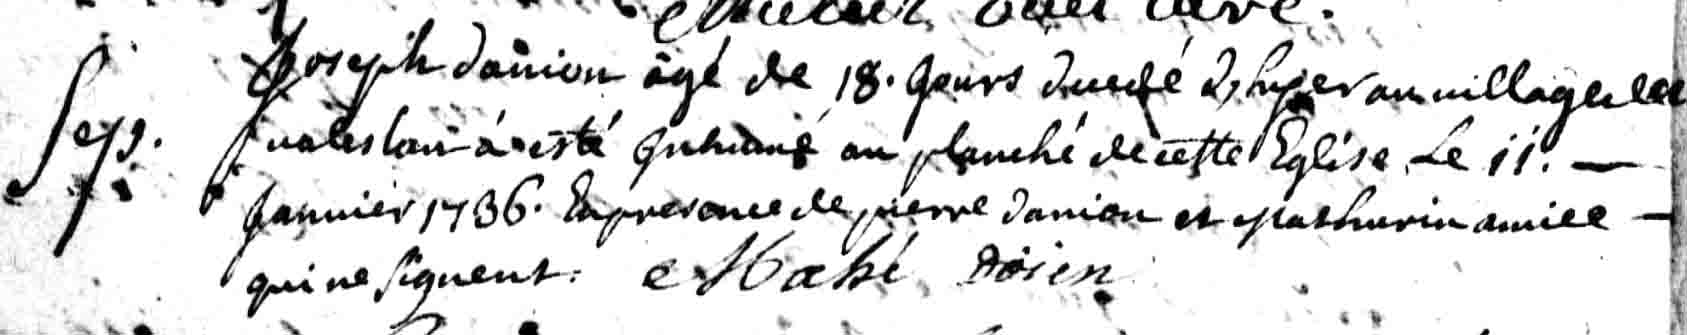 Sep.
Joseph danion âgé de 18. jours duedé d'hyer au village de
a esté Inhumé au planché de cette Eglise Le 11. —
Janvier 1736. En presence de pierre danion et Mathurin amice —
qui ne signent. Mahé Doïen